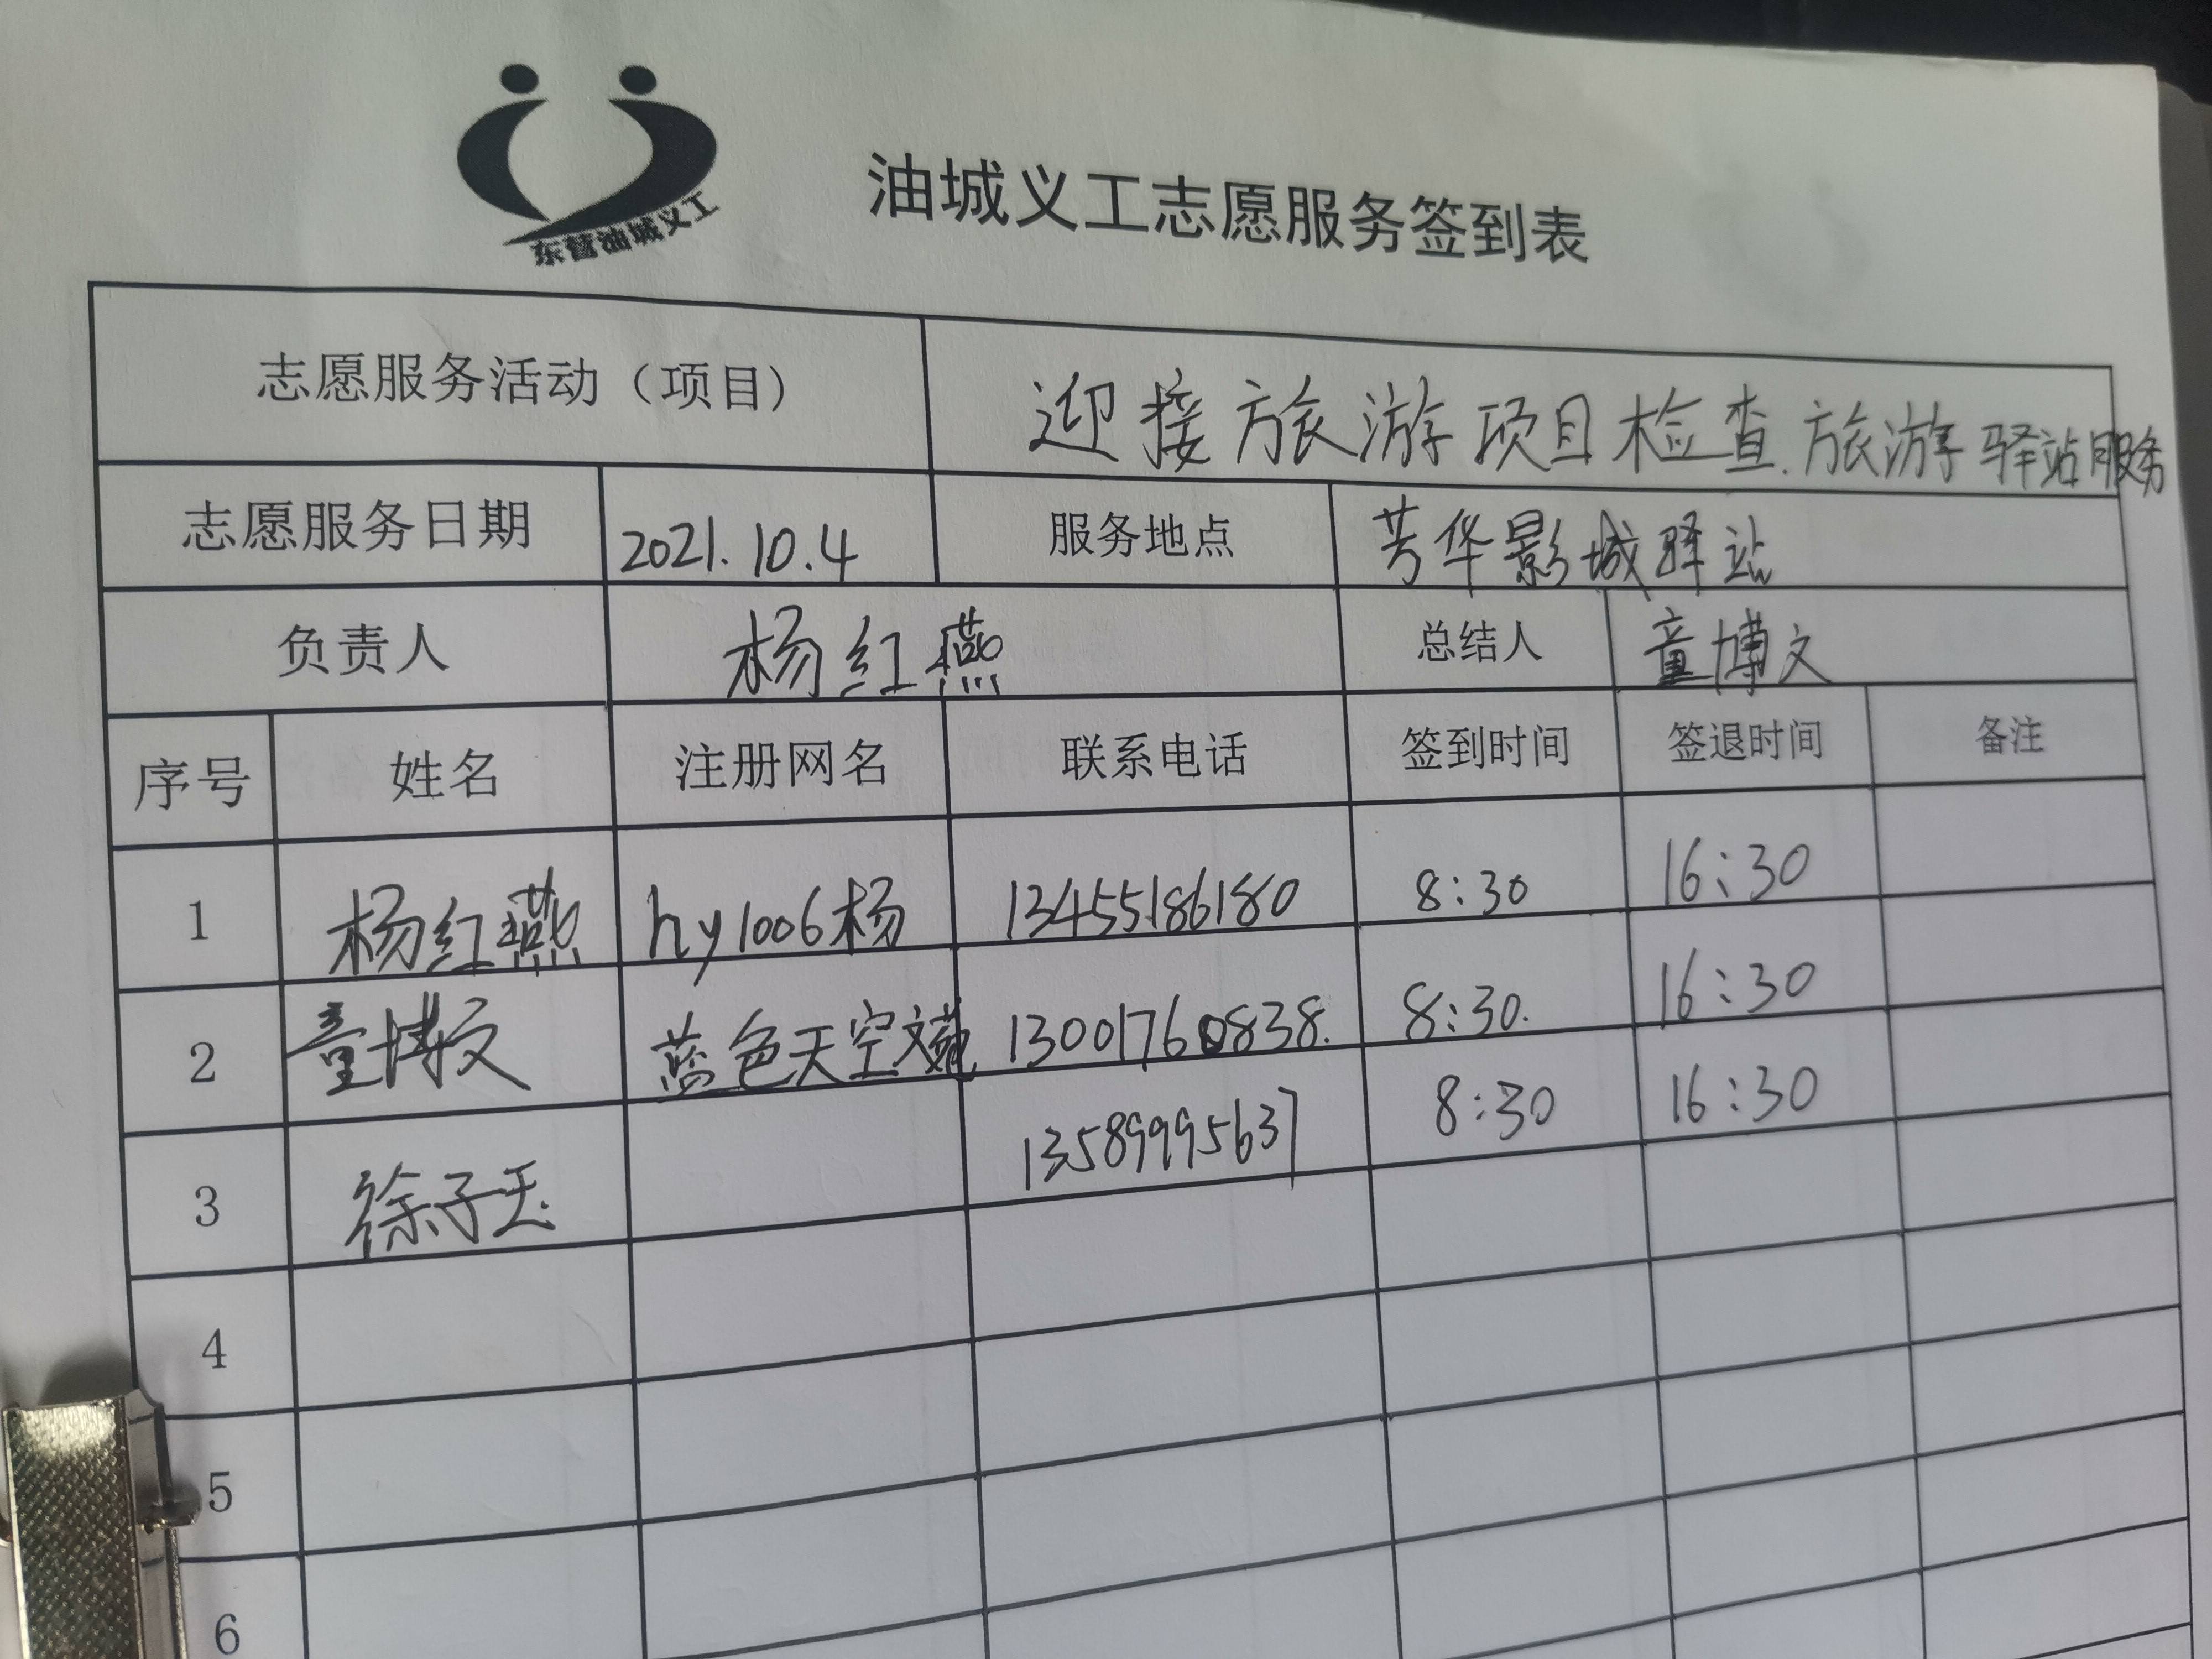 东营油城义工
油城义工志愿服务签到表
志愿服务活动（项目） 迎接旅游项目检查.旅游驿站服务
志愿服务日期 2021.10.4 服务地点 芳华影城驿站
负责人 杨红燕 总结人 童博文
序号 姓名 注册网名 联系电话 签到时间 签退时间 备注
1 杨红燕 hy1006杨 13455186180 8:30 16:30
2 童博文 蓝色天空文苑 13001760838. 8:30. 16:30
3 徐子玉 13589995637 8:30 16:30
4
5
6